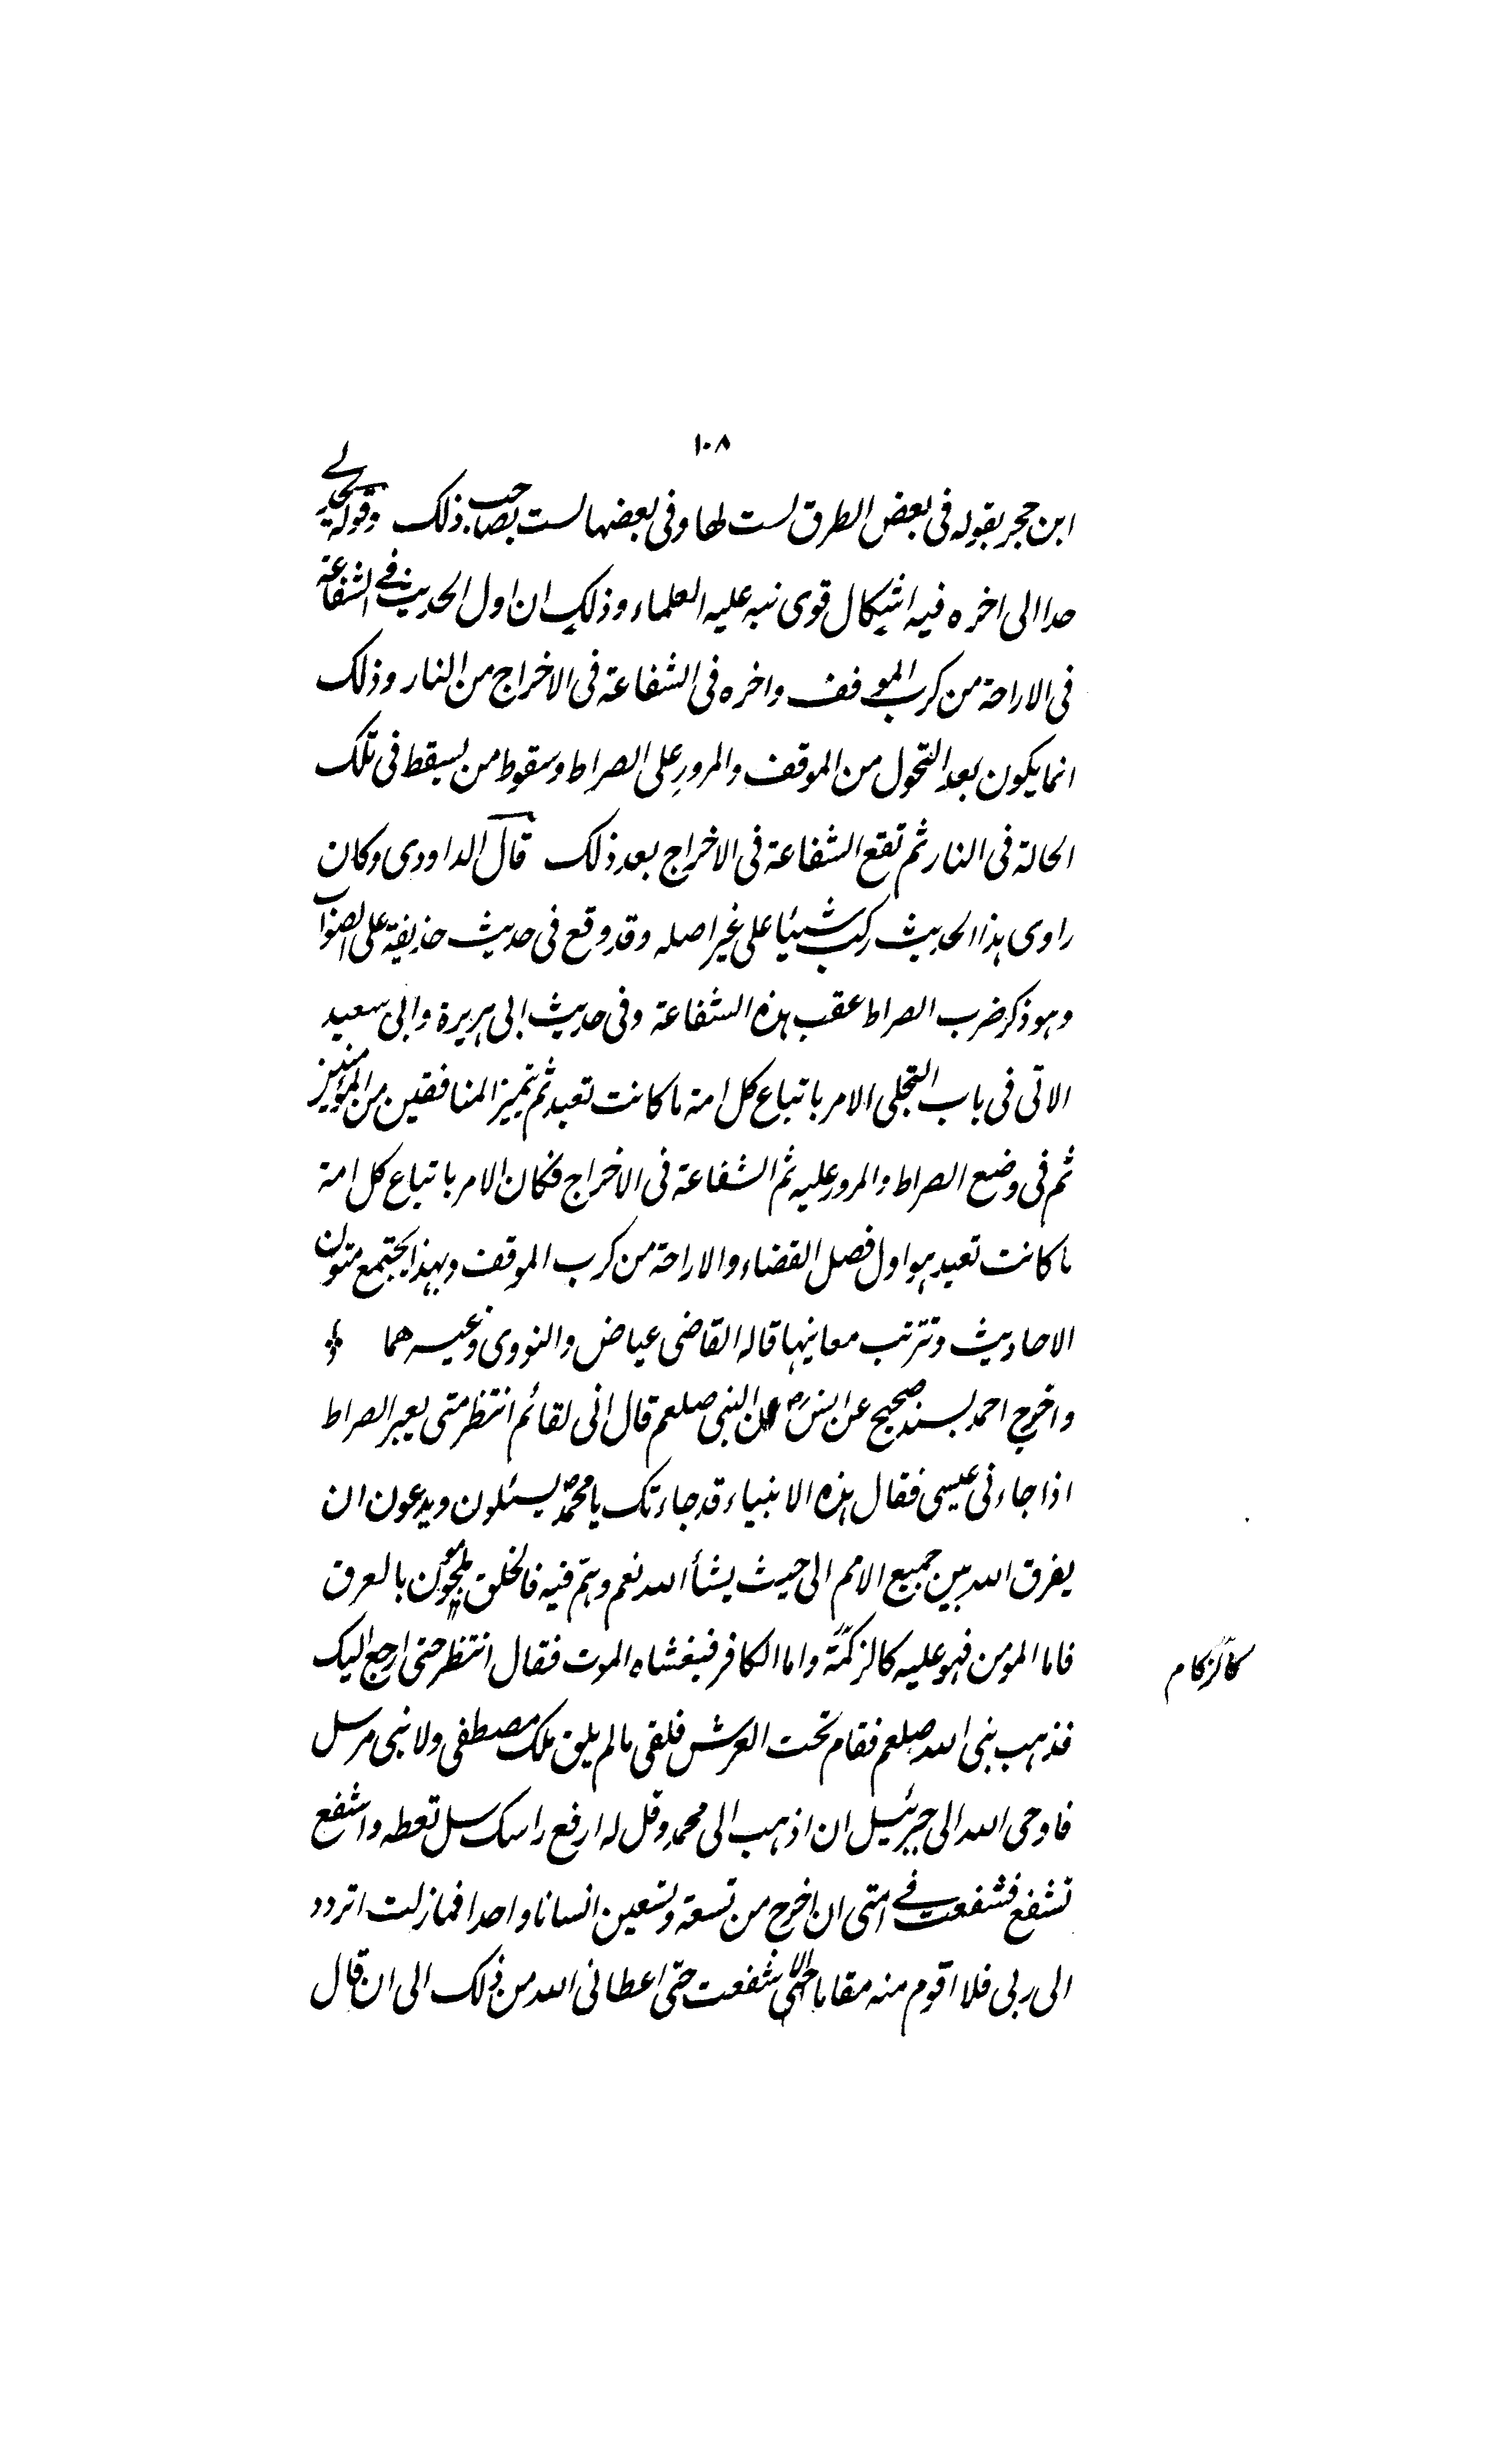 ١٠٨
ابن حجر بقوله فى بعض الطرق لست لها وفى بعضها لست بصاحب ذلك وقوله يحد لى
حدا الى اخره فيه اشكال قوى نبه عليه العلماء وذلك ان اول الحديث فى الشفاعة
فى الاراحة من كرب الموقف واخره فى الشفاعة فى الاخراج من النار وذلك
انما يكون بعد التحول من الموقف والمرور على الصراط وسقوط من يسقط فى تلك
الحالة فى النار ثم تقع الشفاعة فى الاخراج بعد ذلك قال الداودى وكان
راوى هذا الحديث ركب شيئا على غير اصله وقد وقع فى حديث حذيفة على الصواب
وهو ذكر ضرب الصراط عقب هذه الشفاعة وفى حديث ابى هريرة وابى سعيد
الاتى فى باب التجلى الامر باتباع كل امة ما كانت تعبد ثم تميز المنافقين من المؤمنين
ثم فى وضع الصراط والمرور عليه ثم الشفاعة فى الاخراج فكان الامر باتباع كل امة
ما كانت تعبد هو اول فصل القضاء والاراحة من كرب الموقف وبهذا يجتمع متون
الاحاديث وتترتب معانيها قاله القاضى عياض والنووى وغيرهما
واخرج احمد بسند صحيح عن انس رض ان النبى صلعم قال انى لقائم انتظر متى يعبر الصراط
اذا جاءنى عيسى فقال هذه الانبياء قد جاءتك يا محمد يسئلون ويدعون ان
يفرق الله بين جميع الامم الى حيث يشأ الله نعم وهم فيه فالخلق ملجمون بالعرق
فاما المومن فهو عليه كالزكمة واما الكافر فيغشاه الموت فقال انتظر حتى ارجع اليك
كالزكام
فذهب نبى الله صلعم فقام تحت العرش فلقى ما لم يلق ملك مصطفى ولا نبى مرسل
فاوحى الله الى جبرئيل ان اذهب الى محمد وقل له ارفع راسك سل تعطه واشفع
تشفع فشفعت فى امتى ان اخرج من تسعة وتسعين انسانا واحدا فما زلت اتردد
الى ربى فلا اقوم منه مقاما الا شفعت حتى اعطانى الله من ذلك الى ان قال